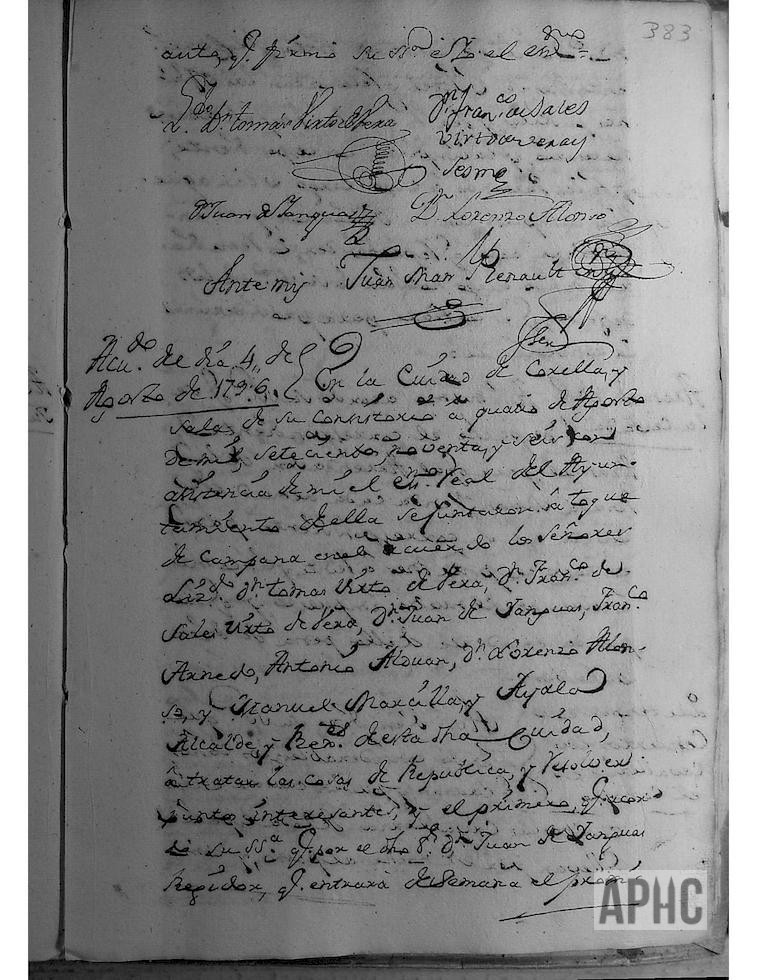 383
auto, q.e firmó su Mrd. é Yo el esno.
Lizdo. Dn. tomas Virto de Vera Dn. Franco. de Sales
Virto de Vera y
Sesma
Dn. Juan de Yanguas Dn. Lorenzo Alonso
Antemi Juan Renault
Acudo. de dia 4,, de
Agosto de 1796.
En la Ciudad de Corella, y
Sala de su Consistorio a quatro de Agosto
de mil, setecientos, noventa, y séis con
asistencia de mi el esno. Real del Ayun-
tamiento de ella se juntaron â toque
de Campana en el acuerdo los Señores
Lizdo. Dn. tomas Virto de Vera, Dn. Franco. de
Sales Virto de Vera, Dn. Juan de Yanguas, Franco.
Arnedo, Antonio Alduan, Dn. Lorenzo Alon-
so, y Manuel Marcilla, y Ayala
Alcalde, y Rexes. de esta dha Ciudad,
â tratar las cosas de Republica, y resolver
punto interesantes, y el primero, q.e acor-
do su Ssa. q.e por el dho Sr. Dn. Juan de Yanguas
Regidor, q.e entrara de Semana el proxi-
APHC